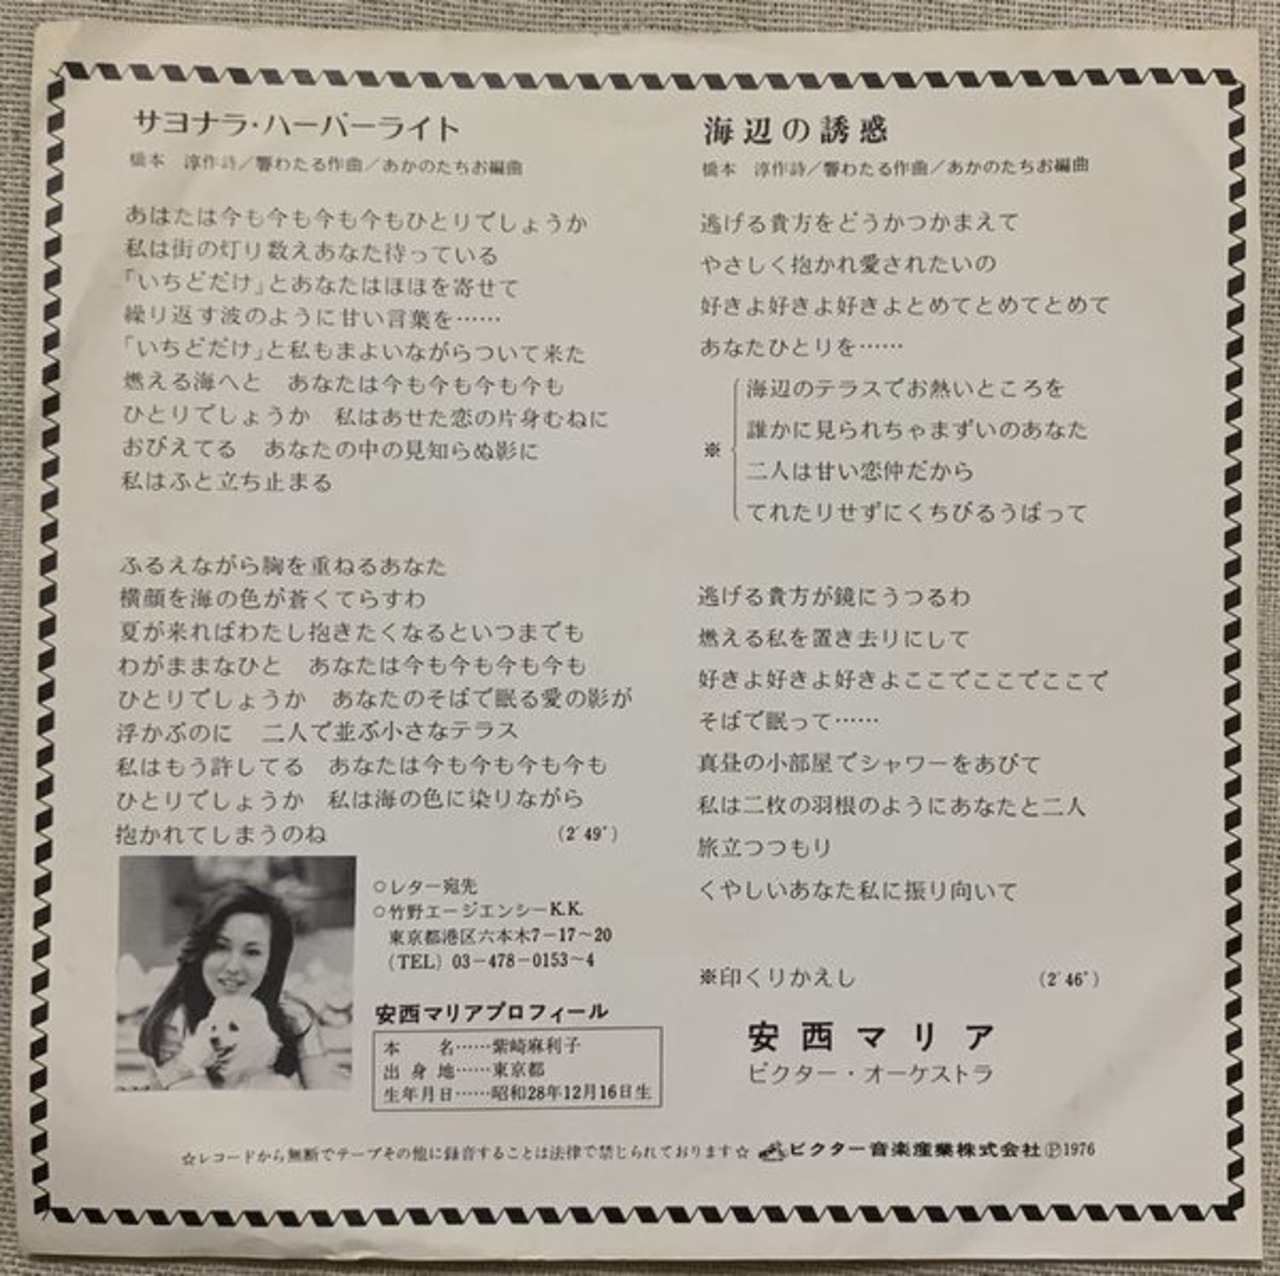 サヨナラ・ハーバーライト
橋本　淳作詩／響わたる作曲／あかのたちお編曲
あはたは今も今も今も今もひとりでしょうか
私は街の灯り数えあなた待っている
「いちどだけ」とあなたはほほを寄せて
繰り返す波のように甘い言葉を……
「いちどだけ」と私もまよいながらついて来た
燃える海へと　あなたは今も今も今も今も
ひとりでしょうか　私はあせた恋の片身むねに
おびえてる　あなたの中の見知らぬ影に
私はふと立ち止まる
ふるえながら胸を重ねるあなた
横顔を海の色が蒼くてらすわ
夏が来ればわたし抱きたくなるといつまでも
わがままなひと　あなたは今も今も今も今も
ひとりでしょうか　あなたのそばで眠る愛の影が
浮かぶのに　二人で並ぶ小さなテラス
私はもう許してる　あなたは今も今も今も今も
ひとりでしょうか　私は海の色に染りながら
抱かれてしまうのね
(2′49″)
○レター宛先
○竹野エージエンシーK.K.
東京都港区六本木7－17～20
(TEL) 03－478－0153～4
安西マリアプロフィール
本　　名……紫崎麻利子
出 身 地……東京都
生年月日……昭和28年12月16日生
海辺の誘惑
橋本　淳作詩／響わたる作曲／あかのたちお編曲
逃げる貴方をどうかつかまえて
やさしく抱かれ愛されたいの
好きよ好きよ好きよとめてとめてとめて
あなたひとりを……
※
海辺のテラスでお熱いところを
誰かに見られちゃまずいのあなた
二人は甘い恋仲だから
てれたりせずにくちびるうばって
逃げる貴方が鏡にうつるわ
燃える私を置き去りにして
好きよ好きよ好きよここでここでここで
そばで眠って……
真昼の小部屋でシャワーをあびて
私は二枚の羽根のようにあなたと二人
旅立つつもり
くやしいあなた私に振り向いて
※印くりかえし
(2′46″)
安西マリア
ビクター・オーケストラ
☆レコードから無断でテープその他に録音することは法律で禁じられております☆ ビクター音楽産業株式会社 Ⓟ1976